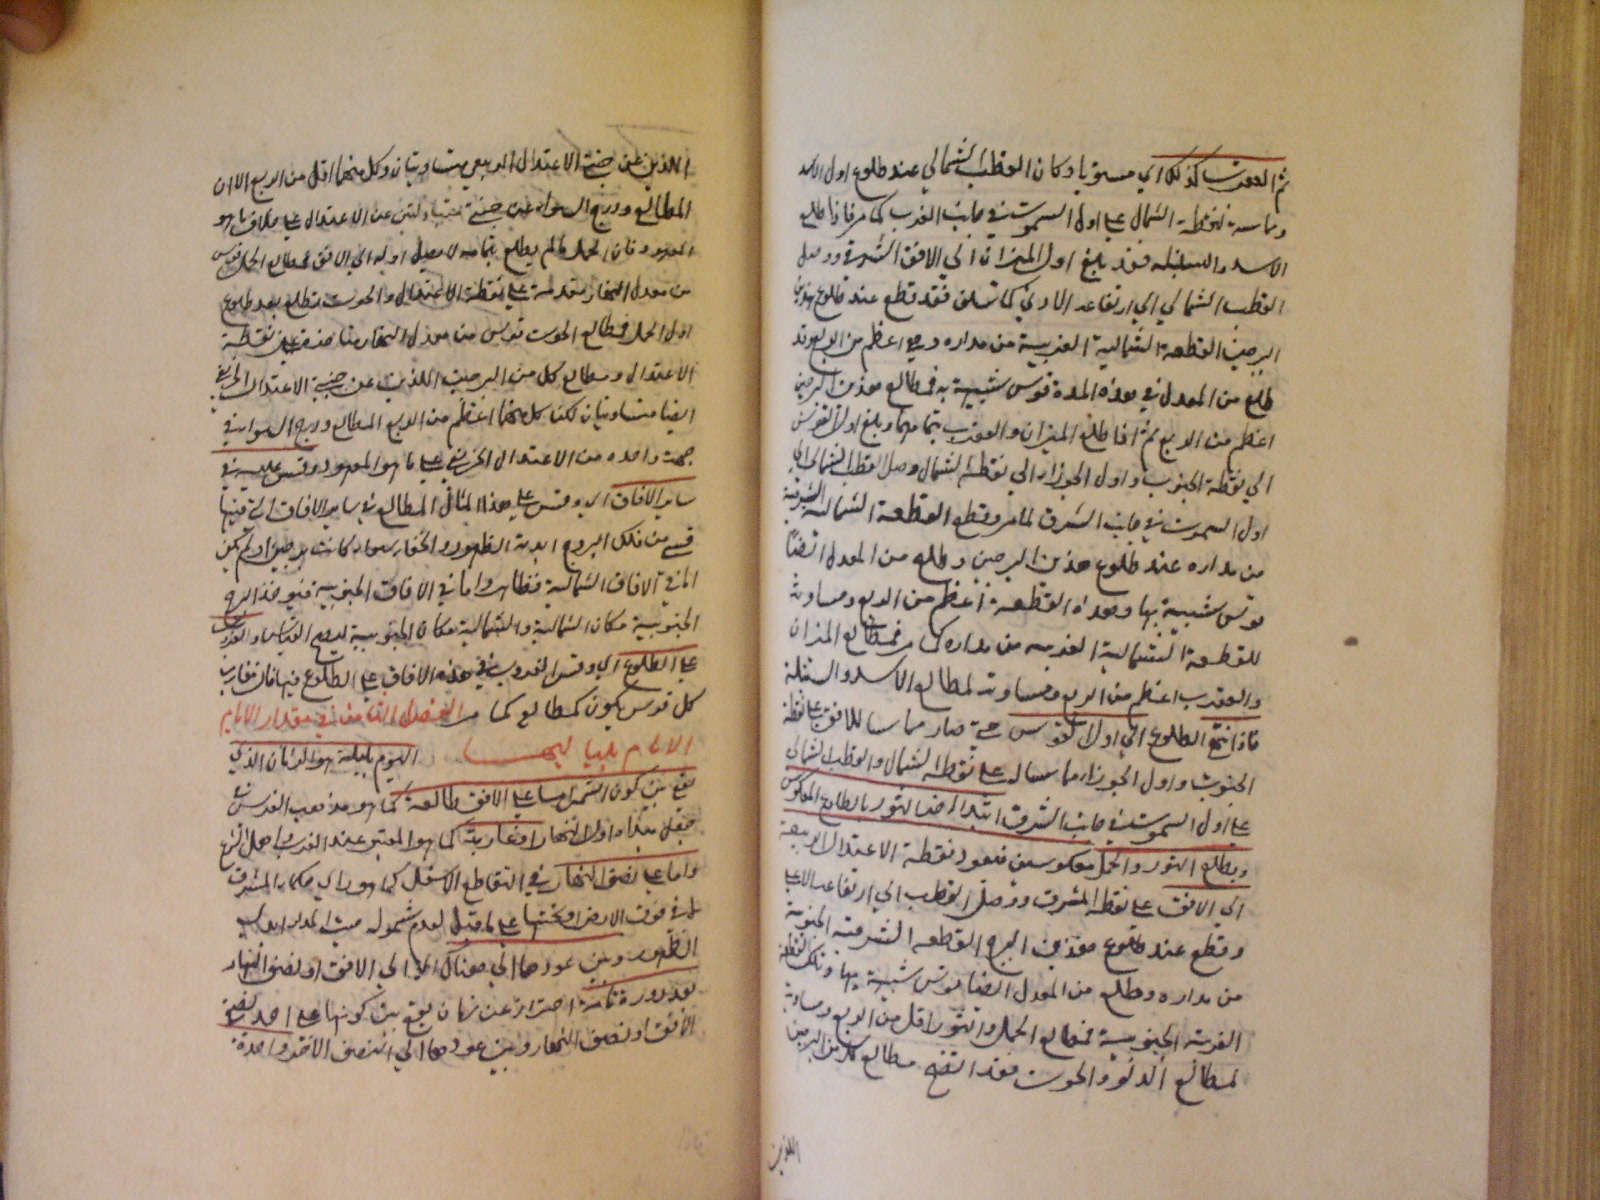 ثم العقرب كذلك اي مستويا وكان القطب الشمالي عند طلوع اول الاسد
ومماسته لنقطة الشمال على اول السموت في جانب الغرب كما مر فاذا طلع
الاسد والسنبلة فقد بلغ اول الميزان الي الافق الشرقي ووصل
القطب الشمالي الي ارتفاعه الادني كما سلف فقد قطع عند طلوع هذين
البرجين القطعة الشمالية الغربية من مداره وهي اعظم من الربع وقد
طلع من المعدل في هذه المدة قوس شبيهة به فمطالع هذين البرجين
اعظم من الربع ثم اذا طلع الميزان والعقرب بتمامهما وبلغ اول القوس
الي نقطة الجنوب واول الجوزاء الي نقطة الشمال وصل القطب الشمالي الي
اول السموت في جانب الشرق لما مر وقطع القطعة الشمالية الشرقية
من مداره عند طلوع هذين البرجين وطلع من المعدل ايضا
قوس شبيهة بها وهذه القطعة اعظم من الربع ومساوية
للقطعة الشمالية الغربية من مداره كما مر فمطالع الميزان
والعقرب اعظم من الربع ومساوية لمطالع الاسد والسنبلة
فاذا انتهي الطلوع الي اول القوس حتي صار مماسا للافق على نقطة
الجنوب واول الجوزاء مماسا له على نقطة الشمال والقطب الشمالي
على اول السموت في جانب الشرق ابتدا اخذ الثور بالطلوع المعكوس
ويطلع الثور والحمل معكوسين فتعود نقطة الاعتدال الربيعي
الي الافق على نقطة المشرق ووصل القطب الي ارتفاعه الاعلي
وقطع عند طلوع هذين البرجين القطعة الشرقية الجنوبية
من مداره وطلع من المعدل ايضا قوس شبيهة بها وتلك القطعة
الغربية الجنوبية فمطالع الحمل والثور اقل من الربع ومساوية
لمطالع الدلو والحوت فقد اتضح مطالع كل من البرجين
اللذين
اللذين عن جنبتي الاعتدال الربيعي متساويتان وكل منهما اقل من الربع الا ان
المطالع ودرج السواء عن جنبتي متبادلتين عن الاعتدال على خلاف ما هو
المعهود فان الحمل ما لم يطلع بتمامه لا يصل اوله الي الافق فمطالع الحمل قوس
من معدل النهار متقدمة على نقطة الاعتدال والحوت تطلع بعد طلوع
اول الحمل فمطالع الحوت قوس من معدل النهار متاخرة عن نقطة
الاعتدال ومطالع كل من البرجين اللذين عن جنبتي الاعتدال الخريفي
ايضا متساويتان لكن كل منهما اعظم من الربع المطالع ودرج السواء في
جهة واحدة من الاعتدال الخريفي على ما هو المعهود وقس عليه في
ساير الافاق اي وقس على هذا المثال المطالع في ساير الافاق التي فيها
قسي من فلك البروج ابدية الظهور والخفاء سواء كانت برجين او لم يكن
اما في الافاق الشمالية فظاهر واما في الافاق الجنوبية فيوخذ البروج
الجنوبية مكان الشمالية والشمالية مكان الجنوبية ليتم القياس والغروب
على الطلوع اي وقس الغروب في هذه الافاق على الطلوع فيها فان مغارب
كل قوس يكون كمطالع كما مر الفصل الثامن في مقدار الايام
الايام بلياليها اليوم بليلته هو الزمان الذي
يقع بين كون الشمس اما على الافق طالعة كما هو مذهب الفرس في
جعل مبدا اول النهار او غاربة كما هو المعتبر عند العرب واهل الشرع
واما على نصف النهار في التقاطع الاسفل كما هو راي حكماء المشرق
لما في فوق الارض او تحتها على ما قيل لعدم شموله حيث المدار ابدي
الظهور وبين عودها الي هناك اي الي الافق او نصف النهار
بعد دورة تامة احتراز عن زمان يقع بين كونها على احد نصفي
الافق او نصف النهار وبين عودها الي النصف الاخر واحدة